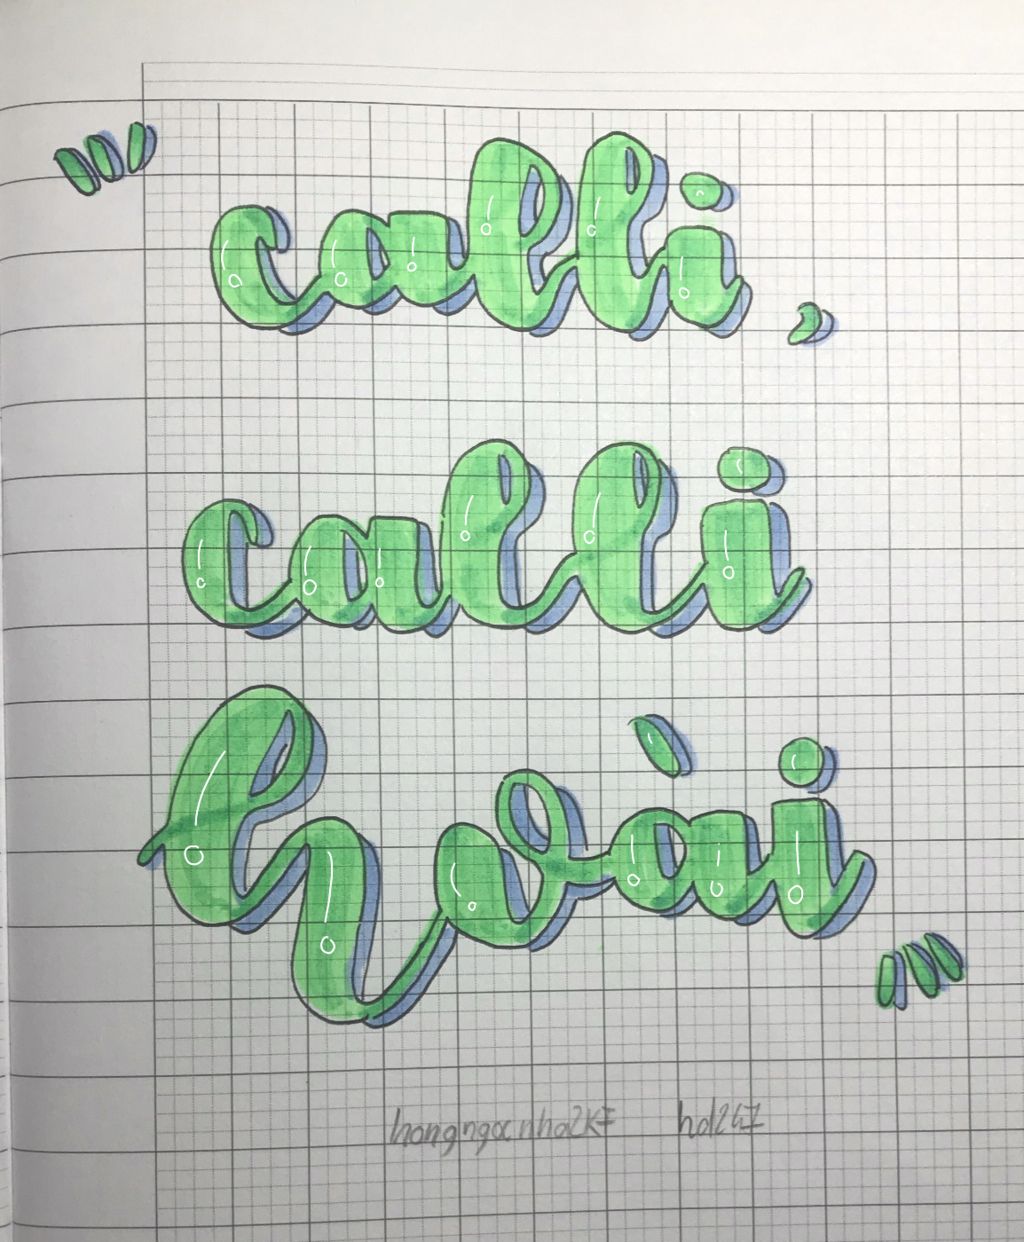 calli,
calli
hoài
hongngocnhd2k7 hd247